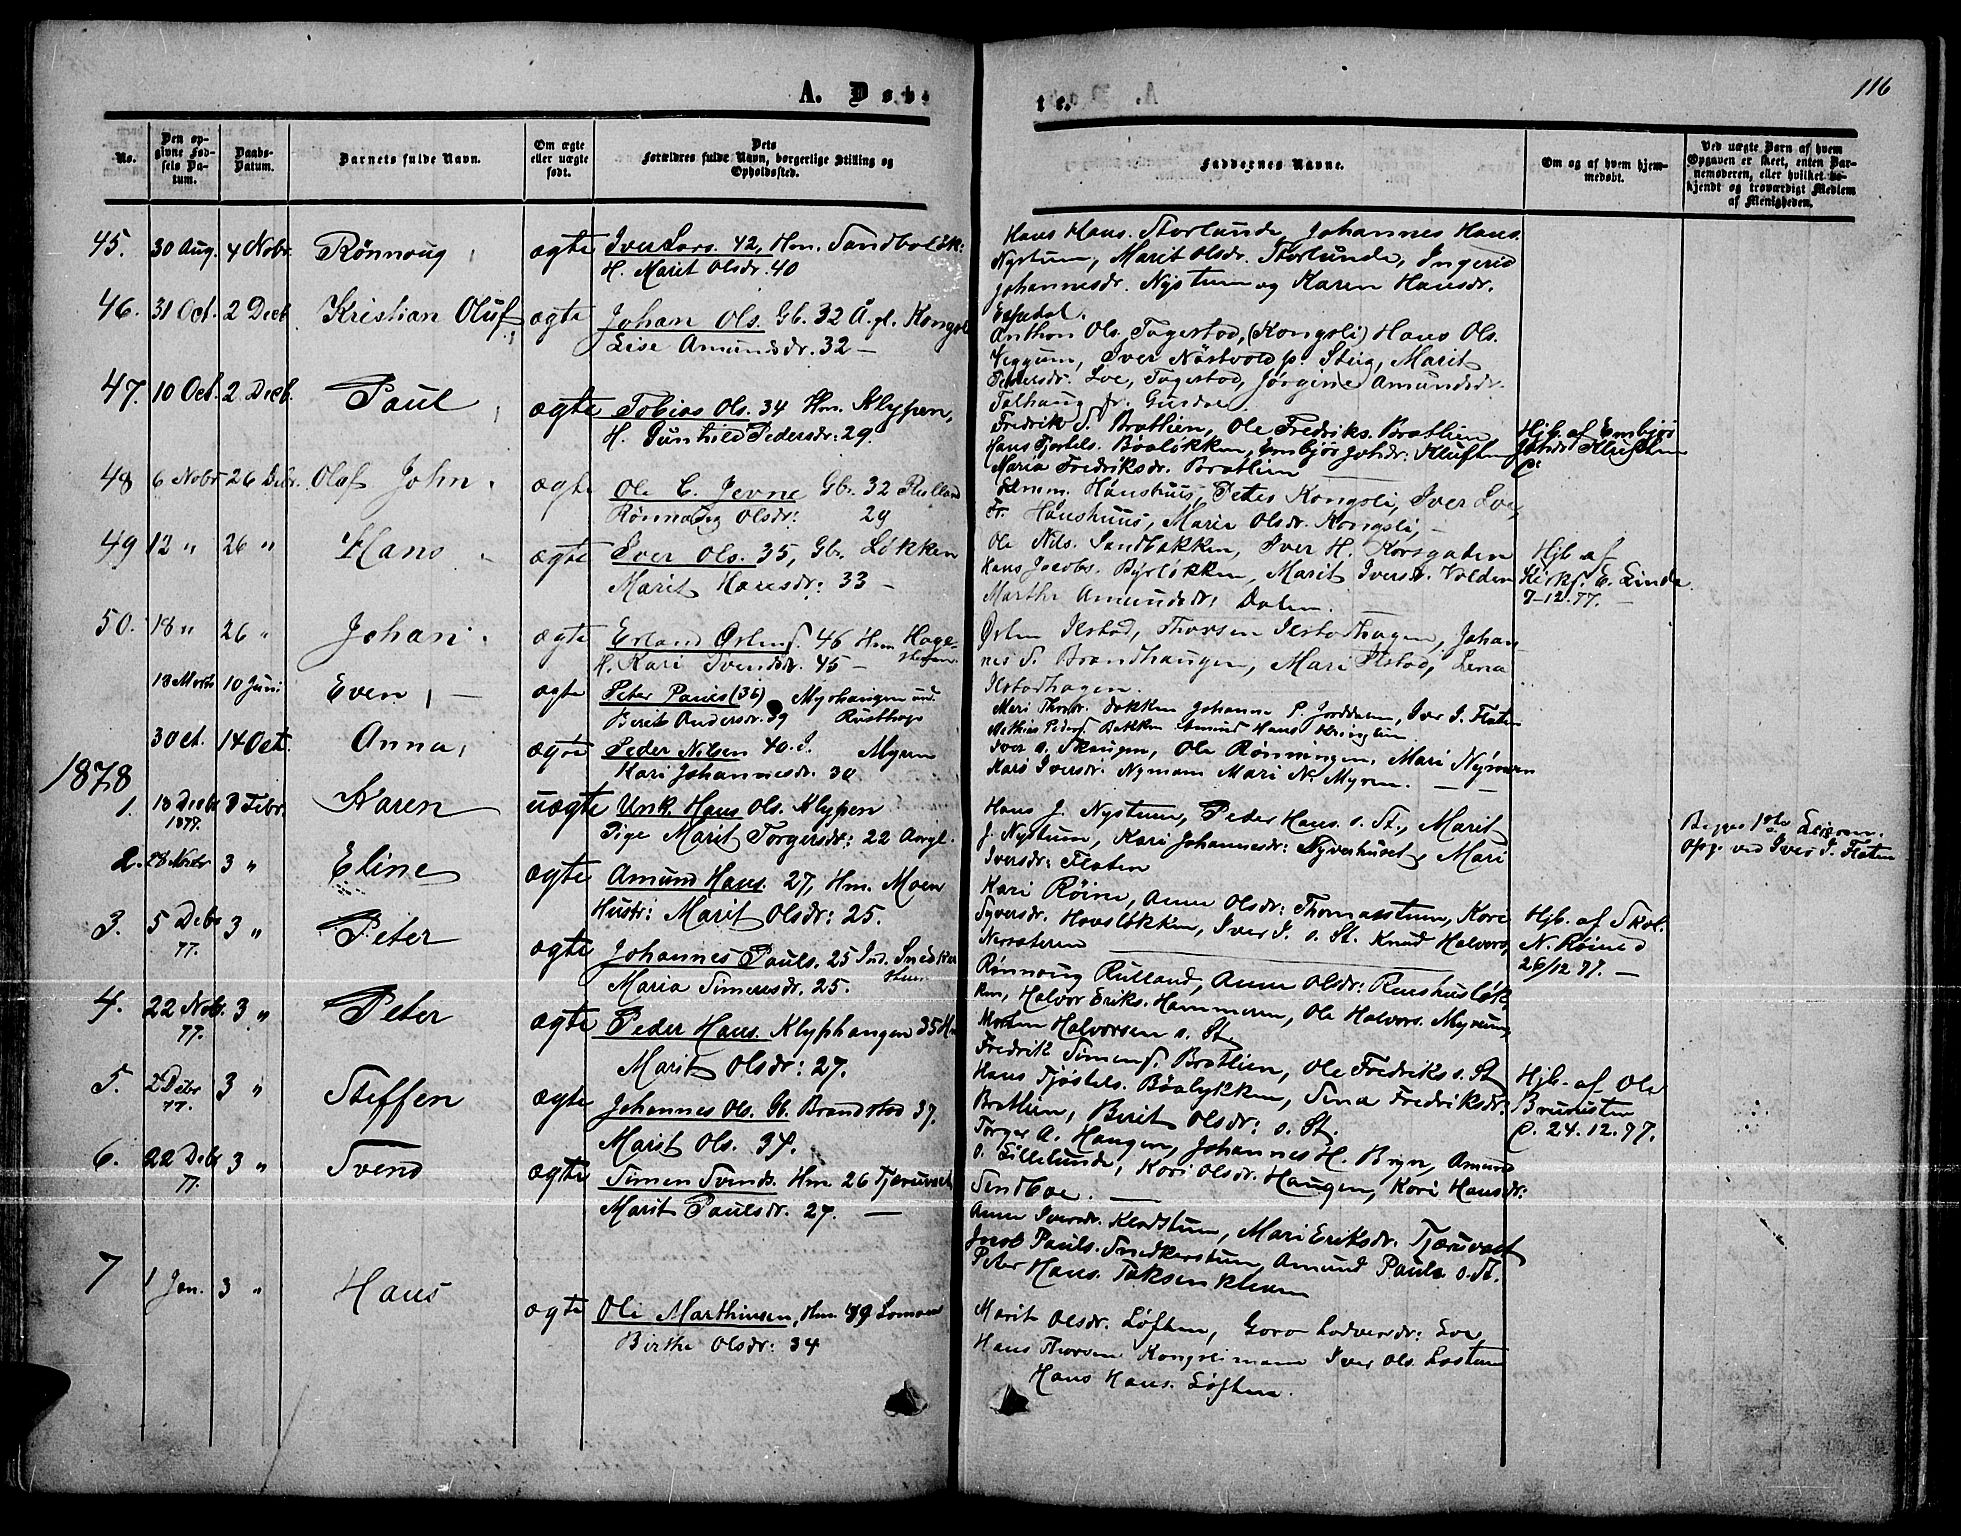 116
A. Døb- te.
No.
Den op-
givne Fød-
sels Da-
tum.
Daabs-
Datum.
Barnets fulde Navn.
Om ægte
eller uægte
født.
Dets
Forældres fulde Navn, borgerlige Stilling og
Opholdssted.
Faddernes Navne.
Om og af hvem hjem-
medøbt.
Ved uægte Børn af hvem
Opgaven er skeet, enten Bar-
nemoderen, eller hvilket be-
kjendt og troværdigt Medlem
af Menigheden.
45. 30 Aug. 4 Nobr. Rønnoug ægte Iver Lars. 42, Hm.
H. Marit Olsdr. 40
Hans Hans. Storlunde, Johannes Hans.
Nystuen, Marit Olsdr. Storlunde, Ingerid
Johannesdr. Nystuen og Karen Hansdr.
Espedal.
46. 31 Oct. 2 Decb. Kristian Oluf ægte Johan Ols. Gb. 32 Å. gl.
Lise Amundsdr. 32 —
Anthon Ols. Fogestad, (Kongsli) Hans Ols.
Veggum, Iver Stig, Marit
Pedersdr. Loe, Jørgine Amundsdr.
47. 10 Oct. 2 Decb. Paul ægte Tobias Ols. 34 Hm. Klypen,
H. Gunhild Pedersdr: 29.
Fredrik S. Bratlien, Ole Fredriks. Bratlien
Hans Tjøstels. Embjør Johdr: Kluften
Maria Fredriksdr. Bratlien
Hjb. af Embjør
Johdr Kluften
48 6 Nobr 26 Debr. Olaf John. ægte Ole C. Jevne Gbr. 32 Rulland
Olsdr: 29
Hønshuus, Peter Kongsli, Iver Loe,
Fr. Hønshuus, Marie Olsdr. Kongsli, —
49 12 " 26 " Hans ægte Iver Ols. 35, Gbr. Løkken
Marit Hansdr: 33 —
Ole Nils. Sandbakken, Iver H. Korsgaden
Hans Jacobs. Byrløkken, Marit Iversdr. Volden
Marthe Amundsdr: Dalen.
Hjb af
Kirks. E. Linde
7-12.77. —
50. 18 " 26 " Johan ægte Erland 46 Hm Hage-
H. Kari Svendsdr. 45 —
Østen Ilstad, Thorsen Ilstadhagen, Johan
nes S. Brandhaugen, Mari Ilstad, Lena
Ilstadhagen.
18 Marts 10 Juni Even, — ægte Peter Pauls (36) Myrhaugen und.
Berit Andersdr. 39 Rusthage
Mari Thordr. Bakken Johanne P. Iver I. Flaten
Mathias Peders Bakken Amund Hans
3 Oct. 14 Oct. Anna, ægte Peder Nilsen 40. Myren
Kari Johannesdr. 30
Iver o. Skaugen, Ole Rønningen, Mari Nymoen
Kari Iversdr. Nymoen Mari N. Myren. —
1878
1. 18 Decbr 1877. 3 Febr. Karen uægte Unk. Hans Ols. Klypen
Pige Marit Torgersdr: 22 Aargl.
Hans J. Nystuen, Peder Hans. o. St., Marit
J. Nystuen, Kari Johannesdr: Nyverhuset, Mari
Iversdr: Flaten
Begges 1ste
Opg. ved Iver I. Flaten
2. 28 Nvbr 3 " Eline ægte Amund Hans. 27, Hm. Moen
Hustr: Marit Olsdr: 25.
Kari Røine, Anne Olsdr: Thomasstuen, Kari
Syversdr. Hovsløkken, Iver I. o. St. Knud Halvors
3. 5 Debr 77. 3 " Peter ægte Johannes Pauls. 25 Ind.
Maria Simensdr. 25.
Rønnoug Rulland, Anne Olsdr: Ruushusløk
ken, Halvor Eriks. Hammeren, Ole Halvors. Myrung,
Morten Halvorsen o. St.
Hjb. af Skol.
N. Røine d
26/12.77. —
4. 22 Nobr. 77. 3 " Peter ægte Peder Hans. Klyphaugen 35 Hm
Marit Olsdr: 27.
Fredrik Simens. Bratlien, Ole Fredriks o. St
Hans Tjøstels. Bøalykken, Sina Fredriksdr:
Bratlien, Berit Olsdr: o. St.
5. 2 Debr 77. 3 " Steffen ægte Johannes Ols. Gb. Brandstad 37.
Marit Ols. 34.
Torger A. Haugen, Johannes H. Bryn, Amund
o. Lillelunde, Kari Olsdr. Haugen, Kari Hansdr:
Sandboe. —
Hjb. af Ole
d. 24.12.77.
6. 22 Debr 77 3 " Svend ægte Simen Svends. Hm 26
Marit Paulsdr. 27. —
Anne Iversdr. Mari Eriksdr.
Jacob Pauls. Snedkerstuen Amund Pauls o. St.
Peter Hans.
7 1 Jan. 3 " Hans ægte Ole Marthinsen, Hm
Birthe Olsdr: 34
Marit Olsdr. Løften, Goro Lodversdr: Loe
Hans Thorsen Kongslimoen Iver Ols.
Hans Hans. Løften.